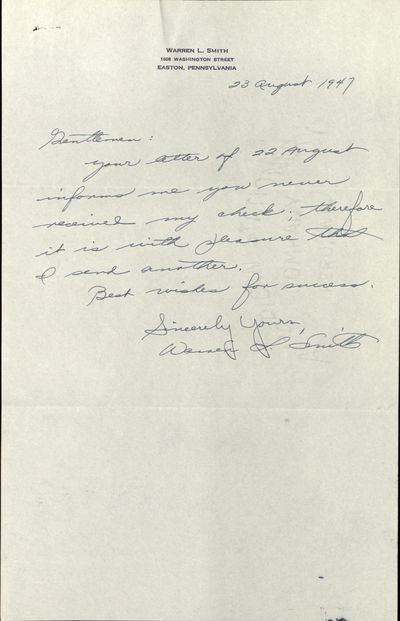 WARREN L. SMITH
1608 WASHINGTON STREET
EASTON, PENNSYLVANIA
23 August 1947
Gentlemen:
your letter of 22 August
informs me you never
received my check; therefore
it is with pleasure that
I send another.
Best wishes for success.
Sincerely Yours,
Warren L. Smith